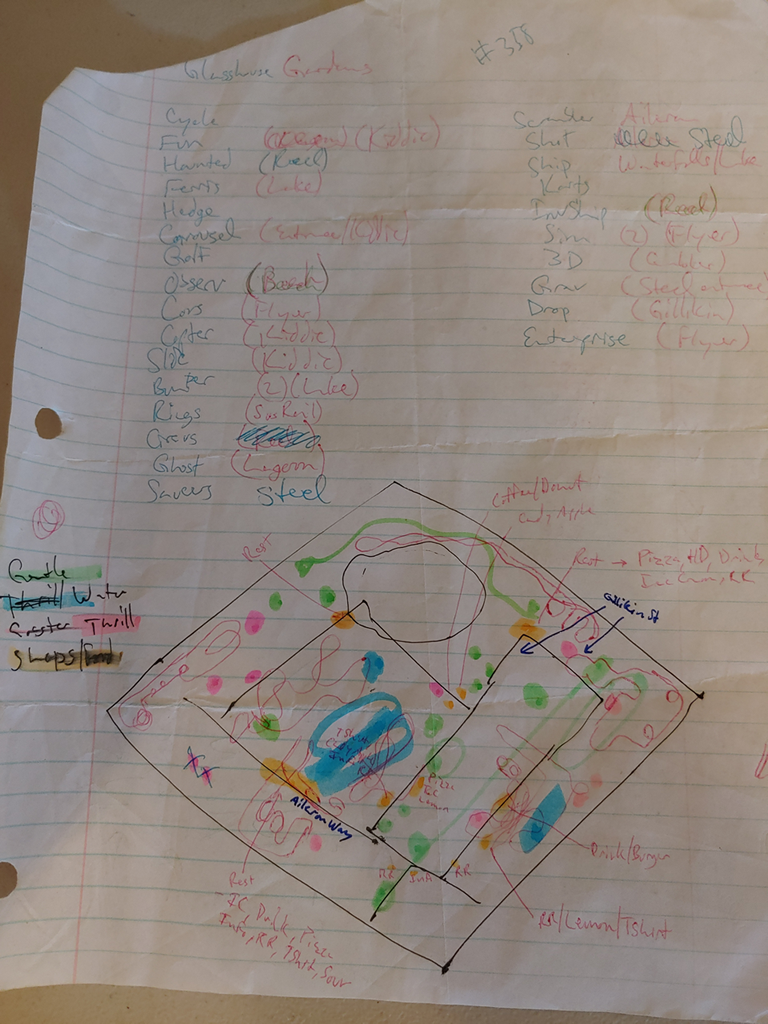 #358
Glasshouse Gardens
Cycle
Fun (Kiddie)
Haunted (Reel)
Ferris (Lake)
Hedge
Carousel (Entrance/Kiddie)
Golf
Observ (Beach)
Cars (Flyer)
Copter (Kiddie)
Slide (Kiddie)
Bumper (2) (Lake)
Rings (SusRail)
Circus
Ghost (Lagoon)
Saucers Steel
Scrambler Aileron
Shot Steel
Ship Waterfalls/Lake
Karts
InvShip (Road)
Sim (2) (Flyer)
3-D
Grav (Steel entrance)
Drop (Gillikin)
Enterprise (Flyer)
Coffee/Donut
Candy Apple
Rest
Rest → Pizza, HD, Drink,
Ice Cream, RR
Gillikin St
Gentle
Thrill/ Water
Coaster Thrill
Shops/
T Shirt
RR
Pizza
IC
Lemon
Aileron Way
Drink/Burger
RR Info RR
RR/Lemon/TShirt
Rest
IC, Drink, Pizza
Info, RR, TShirt, Sour